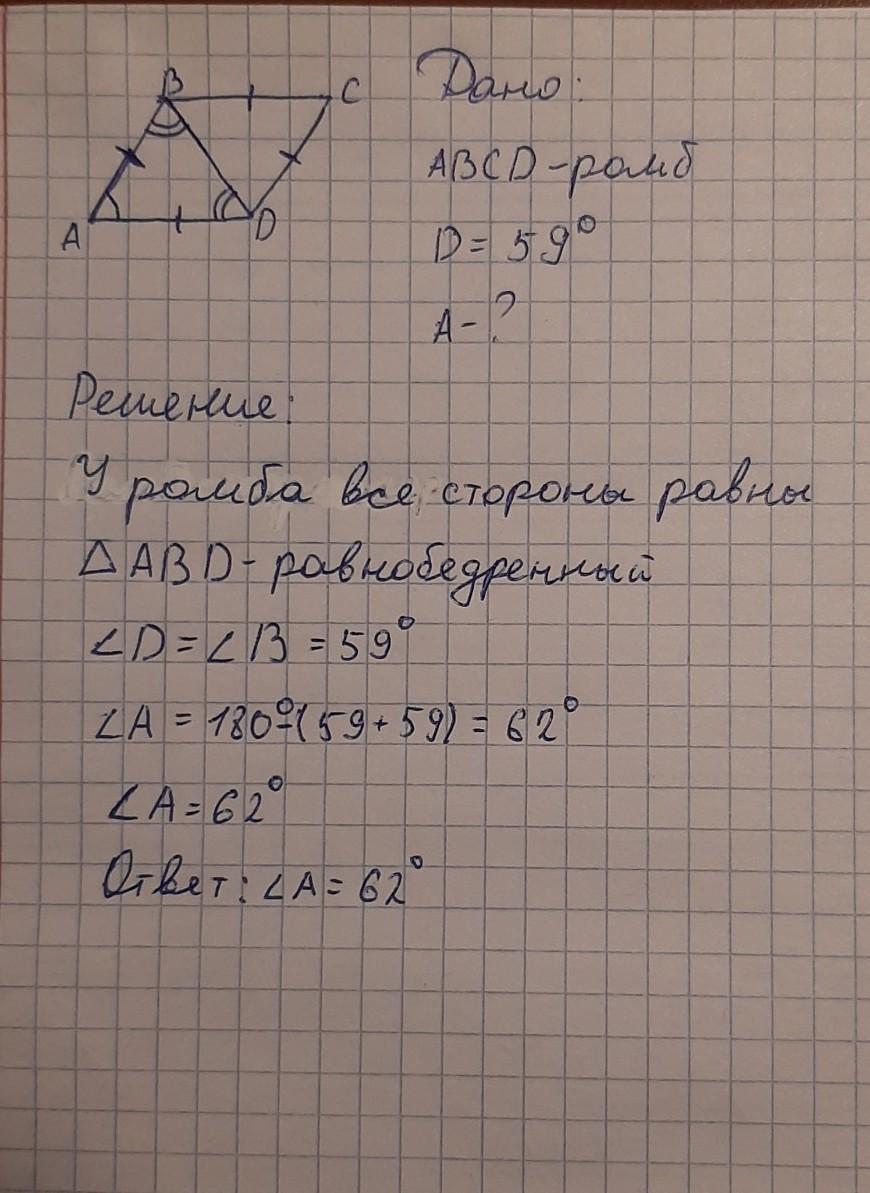 B
C
A
D
Дано:
ABCD - ромб
D = 59°
A - ?
Решение:
У ромба все стороны равны
△ABD - равнобедренный
∠D = ∠B = 59°
∠A = 180°-(59+59) = 62°
∠A = 62°
Ответ: ∠A = 62°